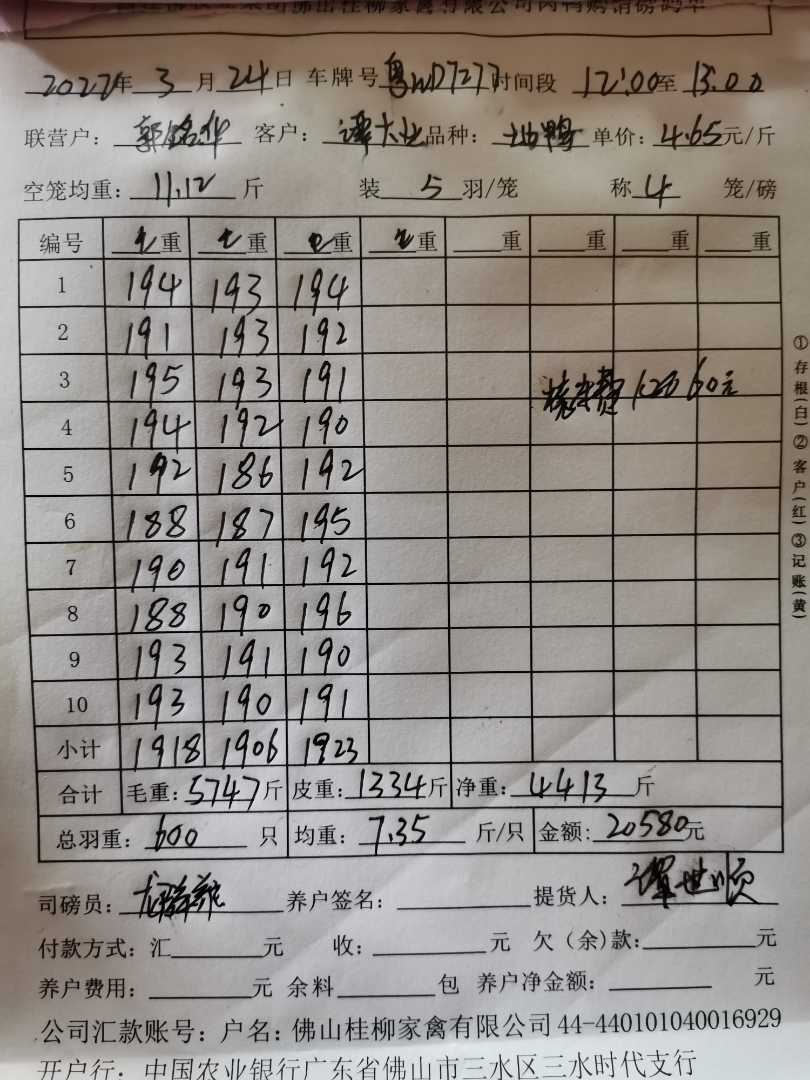 佛山桂柳家禽有限公司肉鸭购销磅码单
2022年 3 月 24 日 车牌号 粤WD7277 时间段 12:00 至 13:00
联营户: 郭铭华 客户: 谭大业 品种: 山鸭 单价: 4.65 元/斤
空笼均重: 11.12 斤 装 5 羽/笼 称 4 笼/磅
编号 重 重 重 重 重 重 重 重
1 194 193 194
2 191 193 192
3 195 193 191
4 194 192 190
5 192 186 192
6 188 187 195
7 190 191 192
8 188 190 196
9 193 191 190
10 193 190 191
费 60元
小计 1918 1906 1923
合计 毛重: 5747 斤 皮重: 1334 斤 净重: 4413 斤
总羽重: 600 只 均重: 7.35 斤/只 金额: 20580 元
司磅员: 养户签名: 提货人: 谭世顺
付款方式: 汇 元 收: 元 欠(余)款: 元
养户费用: 元 余料 包 养户净金额: 元
公司汇款账号: 户名: 佛山桂柳家禽有限公司 44-440101040016929
开户行: 中国农业银行广东省佛山市三水区三水时代支行
①存根(白)②客户(红)③记账(黄)